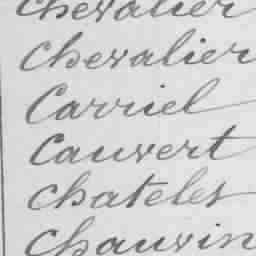 Chevalier
Chevalier
Carriel
Cauvert
Chatelet
Chauvin